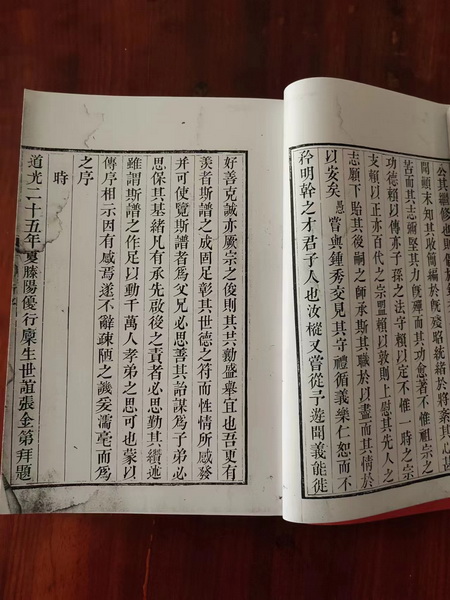 公其繼修也則偏長
間頗未知其收簡編於旣殘略統緒於將紊其心甚
苦而其志術堅其力旣殫而其功愈著不惟祖宗之
功德賴以傳亦子孫之法守賴以定不惟一時之宗
支賴以正亦百代之宗盟賴以敦則上慰其先人之
志願下貽其後嗣之師承斯其職於以盡而其情於
以安矣愚嘗與鍾秀交見其守禮循義樂仁恕而不
矜明幹之才君子人也汝樅又嘗從予遊聞義能徙
好善克誠亦厥宗之俊則其共勷盛舉宜也吾更有
羨者斯譜之成固足彰其世德之符而性情所感發
并可使覽斯譜者爲父兄必思善其詒謀爲子弟必
思保其基緒凡有承先啟後之責者必思勤其纘述
雖謂斯譜之作足以動千萬人孝弟之思可也蒙以
傳序相示因有感焉遂不辭疎陋之譏爰濡毫而爲
之序
時
道光二十五年夏滕陽優行廩生世誼張金第拜題